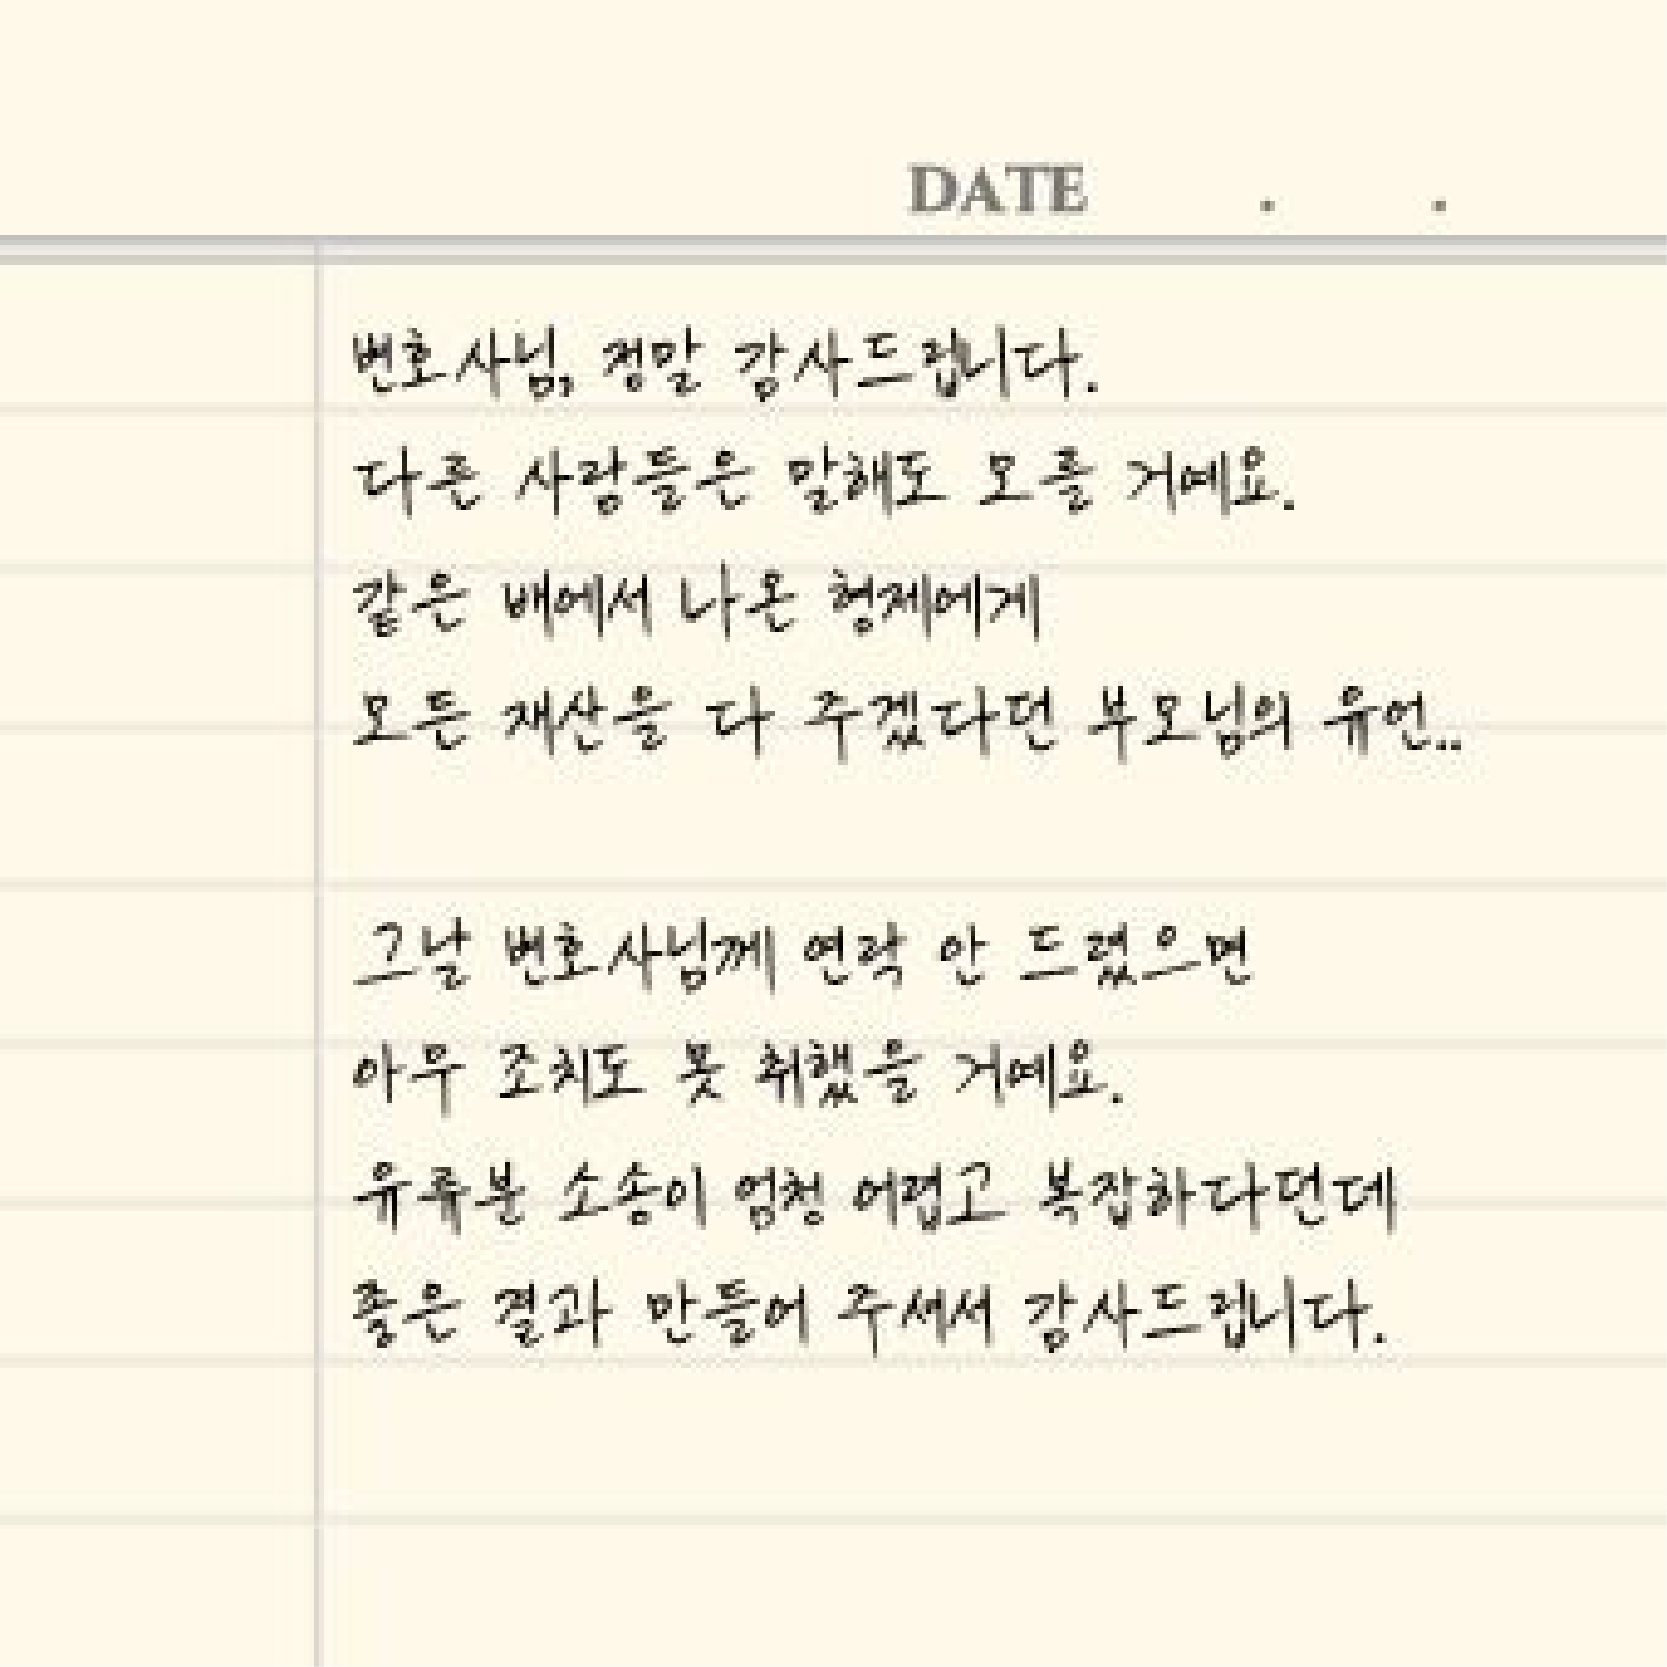 DATE . .
변호사님, 정말 감사드립니다.
다른 사람들은 말해도 모를 거예요.
같은 배에서 나온 형제에게
모든 재산을 다 주겠다던 부모님의 유언..
그날 변호사님께 연락 안 드렸으면
아무 조치도 못 취했을 거예요.
유류분 소송이 엄청 어렵고 복잡하다던데
좋은 결과 만들어 주셔서 감사드립니다.